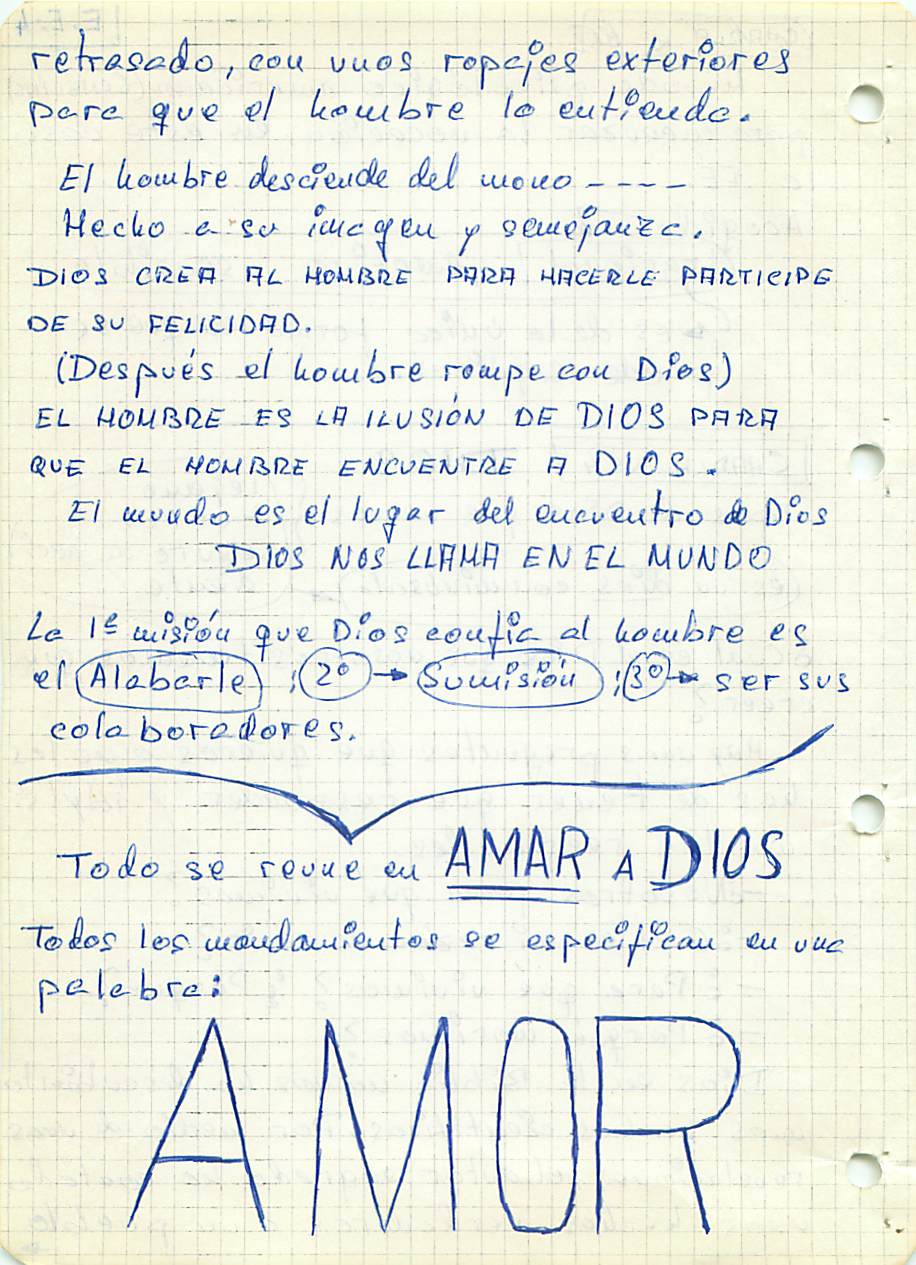 retrasado, con unos ropajes exteriores
para que el hombre lo entienda.
El hombre desciende del mono ----
Hecho a su imagen y semejanza.
DIOS CREA AL HOMBRE PARA HACERLE PARTICIPE
DE SU FELICIDAD.
(Después el hombre rompe con Dios)
EL HOMBRE ES LA ILUSIÓN DE DIOS PARA
QUE EL HOMBRE ENCUENTRE A DIOS.
El mundo es el lugar del encuentro de Dios
DIOS NOS LLAMA EN EL MUNDO
La 1ª misión que Dios confía al hombre es
el Alabarle ; 2º → Sumisión ; 3º → ser sus
colaboradores.
Todo se reune en AMAR A DIOS
Todos los mandamientos se especifican en una
palabra:
AMOR